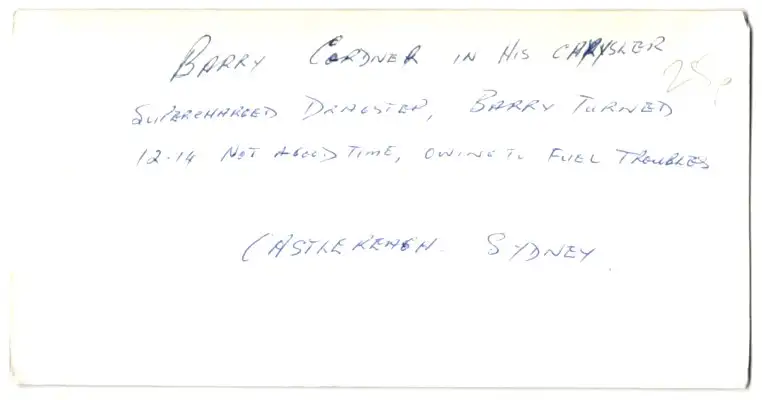 BARRY CARDNER IN HIS CHRYSLER
25p
SUPERCHARGED DRAGSTER, BARRY TURNED
12.14 NOT A GOOD TIME, OWING TO FUEL TROUBLES
CASTLEREAGH. SYDNEY.